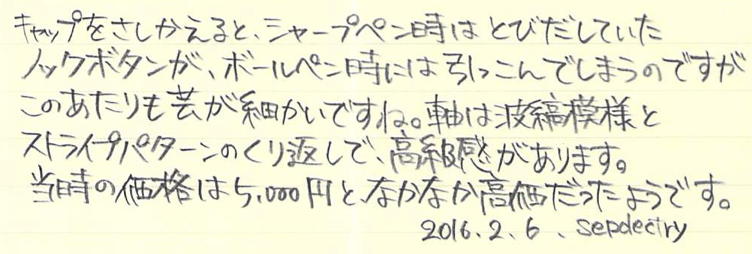 キャップをさしかえると、シャープペン時はとびだしていた
ノックボタンが、ボールペン時には引っこんでしまうのですが
このあたりも芸が細かいですね。軸は波縞模様と
ストライプパターンのくり返しで、高級感があります。
当時の価格は5,000円と、なかなか高価だったようです。
2016.2.6、sepdeciry